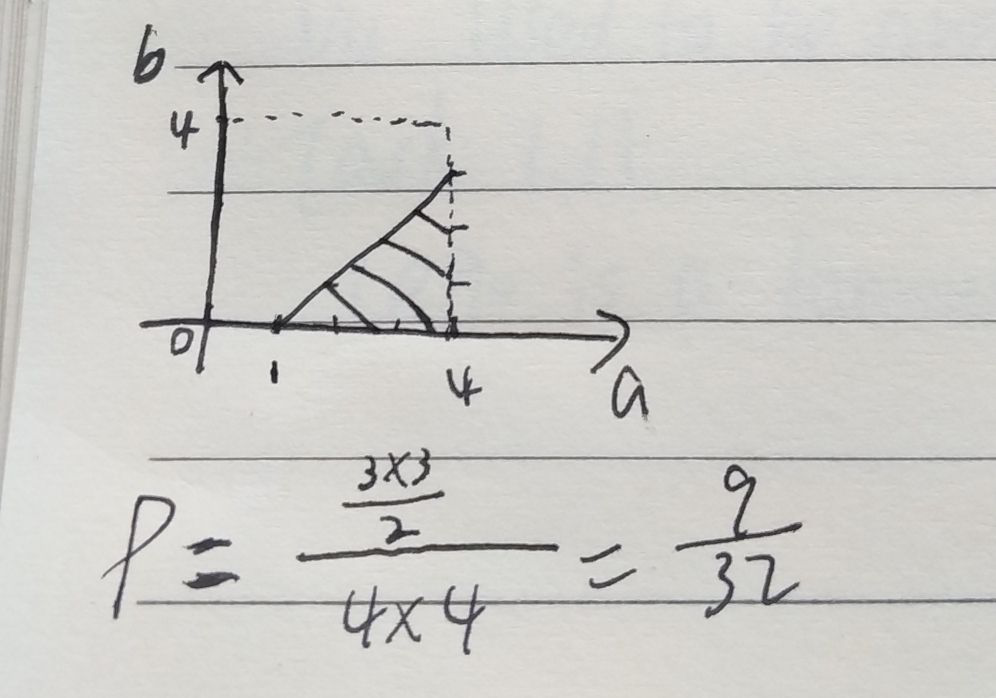 b
4
0
1 4 a
P = \frac{\frac{3×3}{2}}{4×4} = \frac{9}{32}